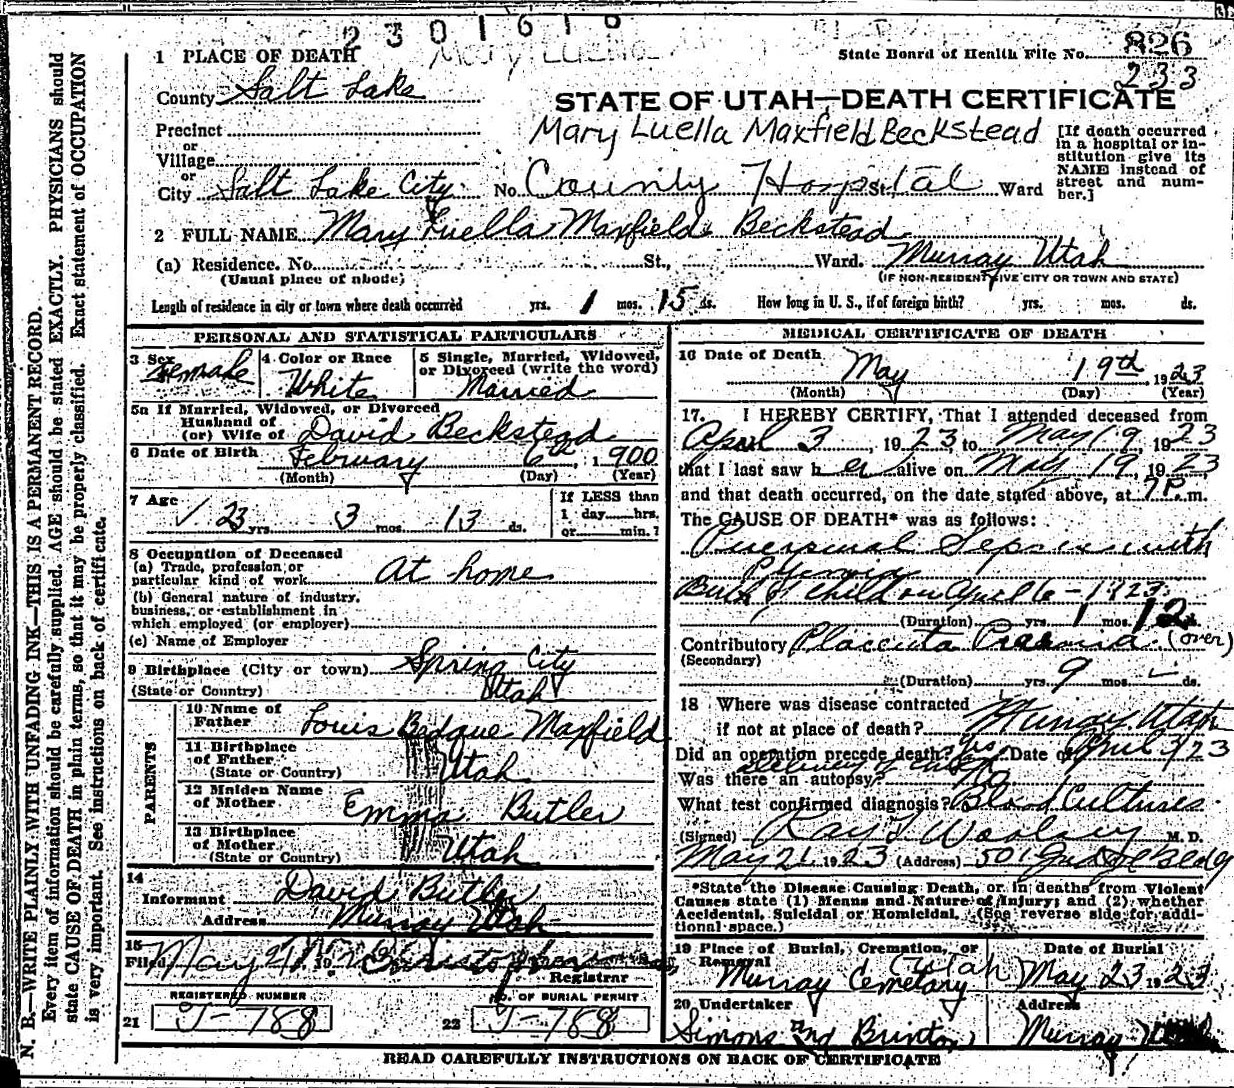 2301616
Mary Luella
1 PLACE OF DEATH
State Board of Health File No. 826
233
County Salt Lake
STATE OF UTAH—DEATH CERTIFICATE
Precinct
or
Village
or
City Salt Lake City No. County Hospital St. Ward
Mary Luella Maxfield Beckstead
[If death occurred
in a hospital or in-
stitution give its
NAME instead of
street and num-
ber.]
2 FULL NAME Mary Luella Maxfield Beckstead
(a) Residence. No. St., Ward. Murray Utah
(Usual place of abode) (IF NON-RESIDENT GIVE CITY OR TOWN AND STATE)
Length of residence in city or town where death occurred yrs. 1 mos. 15 ds. How long in U. S., if of foreign birth? yrs. mos. ds.
PERSONAL AND STATISTICAL PARTICULARS
3 Sex Female
4 Color or Race White
5 Single, Married, Widowed,
or Divorced (write the word)
Married
5a If Married, Widowed, or Divorced
Husband of
(or) Wife of David Beckstead
6 Date of Birth February 6th, 1900
(Month) (Day) (Year)
7 Age 23 yrs. 3 mos. 13 ds.
If LESS than
1 day hrs.
or min.?
8 Occupation of Deceased
(a) Trade, profession, or
particular kind of work At home
(b) General nature of industry,
business, or establishment in
which employed (or employer)
(c) Name of Employer
9 Birthplace (City or town) Spring City
(State or Country) Utah
PARENTS
10 Name of
Father Louis Maxfield
11 Birthplace
of Father
(State or Country) Utah
12 Maiden Name
of Mother Emma Butler
13 Birthplace
of Mother
(State or Country) Utah
14
Informant David Butler
Address Murray Utah
15
Filed May 21 1923
Registrar
REGISTERED NUMBER
21 J-788
NO. OF BURIAL PERMIT
22 J-788
MEDICAL CERTIFICATE OF DEATH
16 Date of Death May 19th 1923
(Month) (Day) (Year)
17. I HEREBY CERTIFY, That I attended deceased from
April 3, 1923, to May 19 1923
that I last saw her alive on May 19, 1923
and that death occurred, on the date stated above, at 7 P.m.
The CAUSE OF DEATH* was as follows:
Puerperal Sepsis with
Pyemia
Birth of child on April 6-1923
(Duration) yrs. 1 mos. 12 ds.
Contributory Placenta Praevia (over)
(Secondary)
(Duration) yrs. 9 mos. ds.
18 Where was disease contracted
if not at place of death? Murray, Utah
Did an operation precede death? yes Date of April 3/23
Was there an autopsy? No
What test confirmed diagnosis? Blood Cultures
(Signed) Ray T Woolsey M. D.
May 21, 1923 (Address) 501 Judge Bldg
*State the Disease Causing Death, or in deaths from Violent
Causes state (1) Means and Nature of Injury; and (2) whether
Accidental, Suicidal or Homicidal. (See reverse side for addi-
tional space.)
19 Place of Burial, Cremation, or
Removal
Murray Cemetary (Utah)
Date of Burial
May 23 1923
20 Undertaker
Simons and Brinton
Address
Murray Utah
READ CAREFULLY INSTRUCTIONS ON BACK OF CERTIFICATE
N. B.—WRITE PLAINLY WITH UNFADING INK—THIS IS A PERMANENT RECORD.
Every item of information should be carefully supplied. AGE should be stated EXACTLY. PHYSICIANS should
state CAUSE OF DEATH in plain terms, so that it may be properly classified. Exact statement of OCCUPATION
is very important. See instructions on back of certificate.